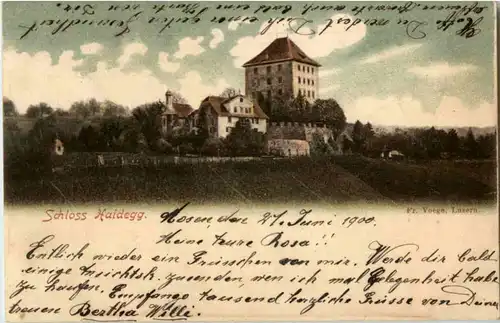 Schloss Haidegg.
Fr. Voege, Luzern.
Mosen den 27. Juni 1900.
Meine teure Rosa!!
Endlich wieder ein Grüsschen von mir. Werde dir bald
einige Ansichtsk. zusenden, wen ich mal Gelegenheit habe
zu kaufen. Empfange tausend herzliche Grüsse von Deiner
treuen Bertha Willi.